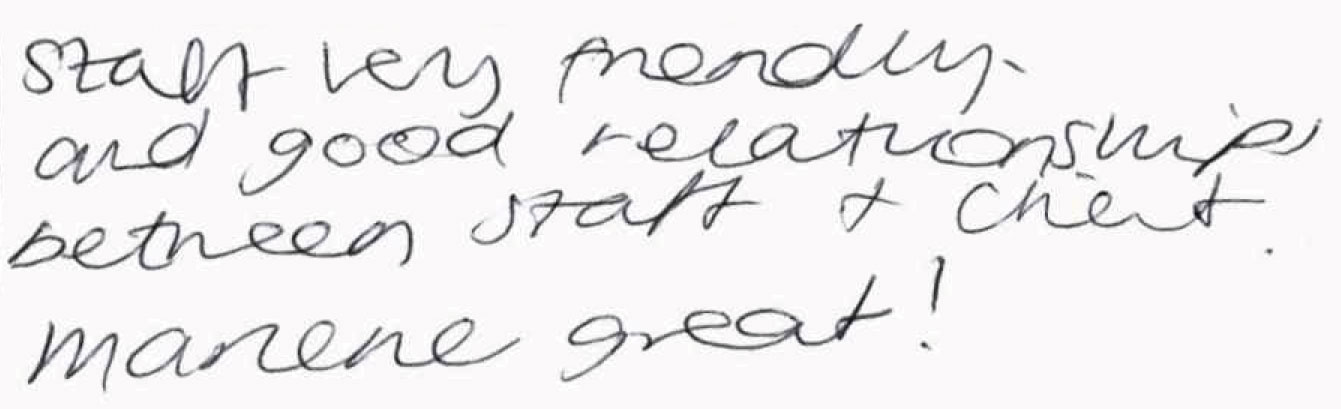 Staff very friendly.
and good relationship
between staff + client.
Marlene great!